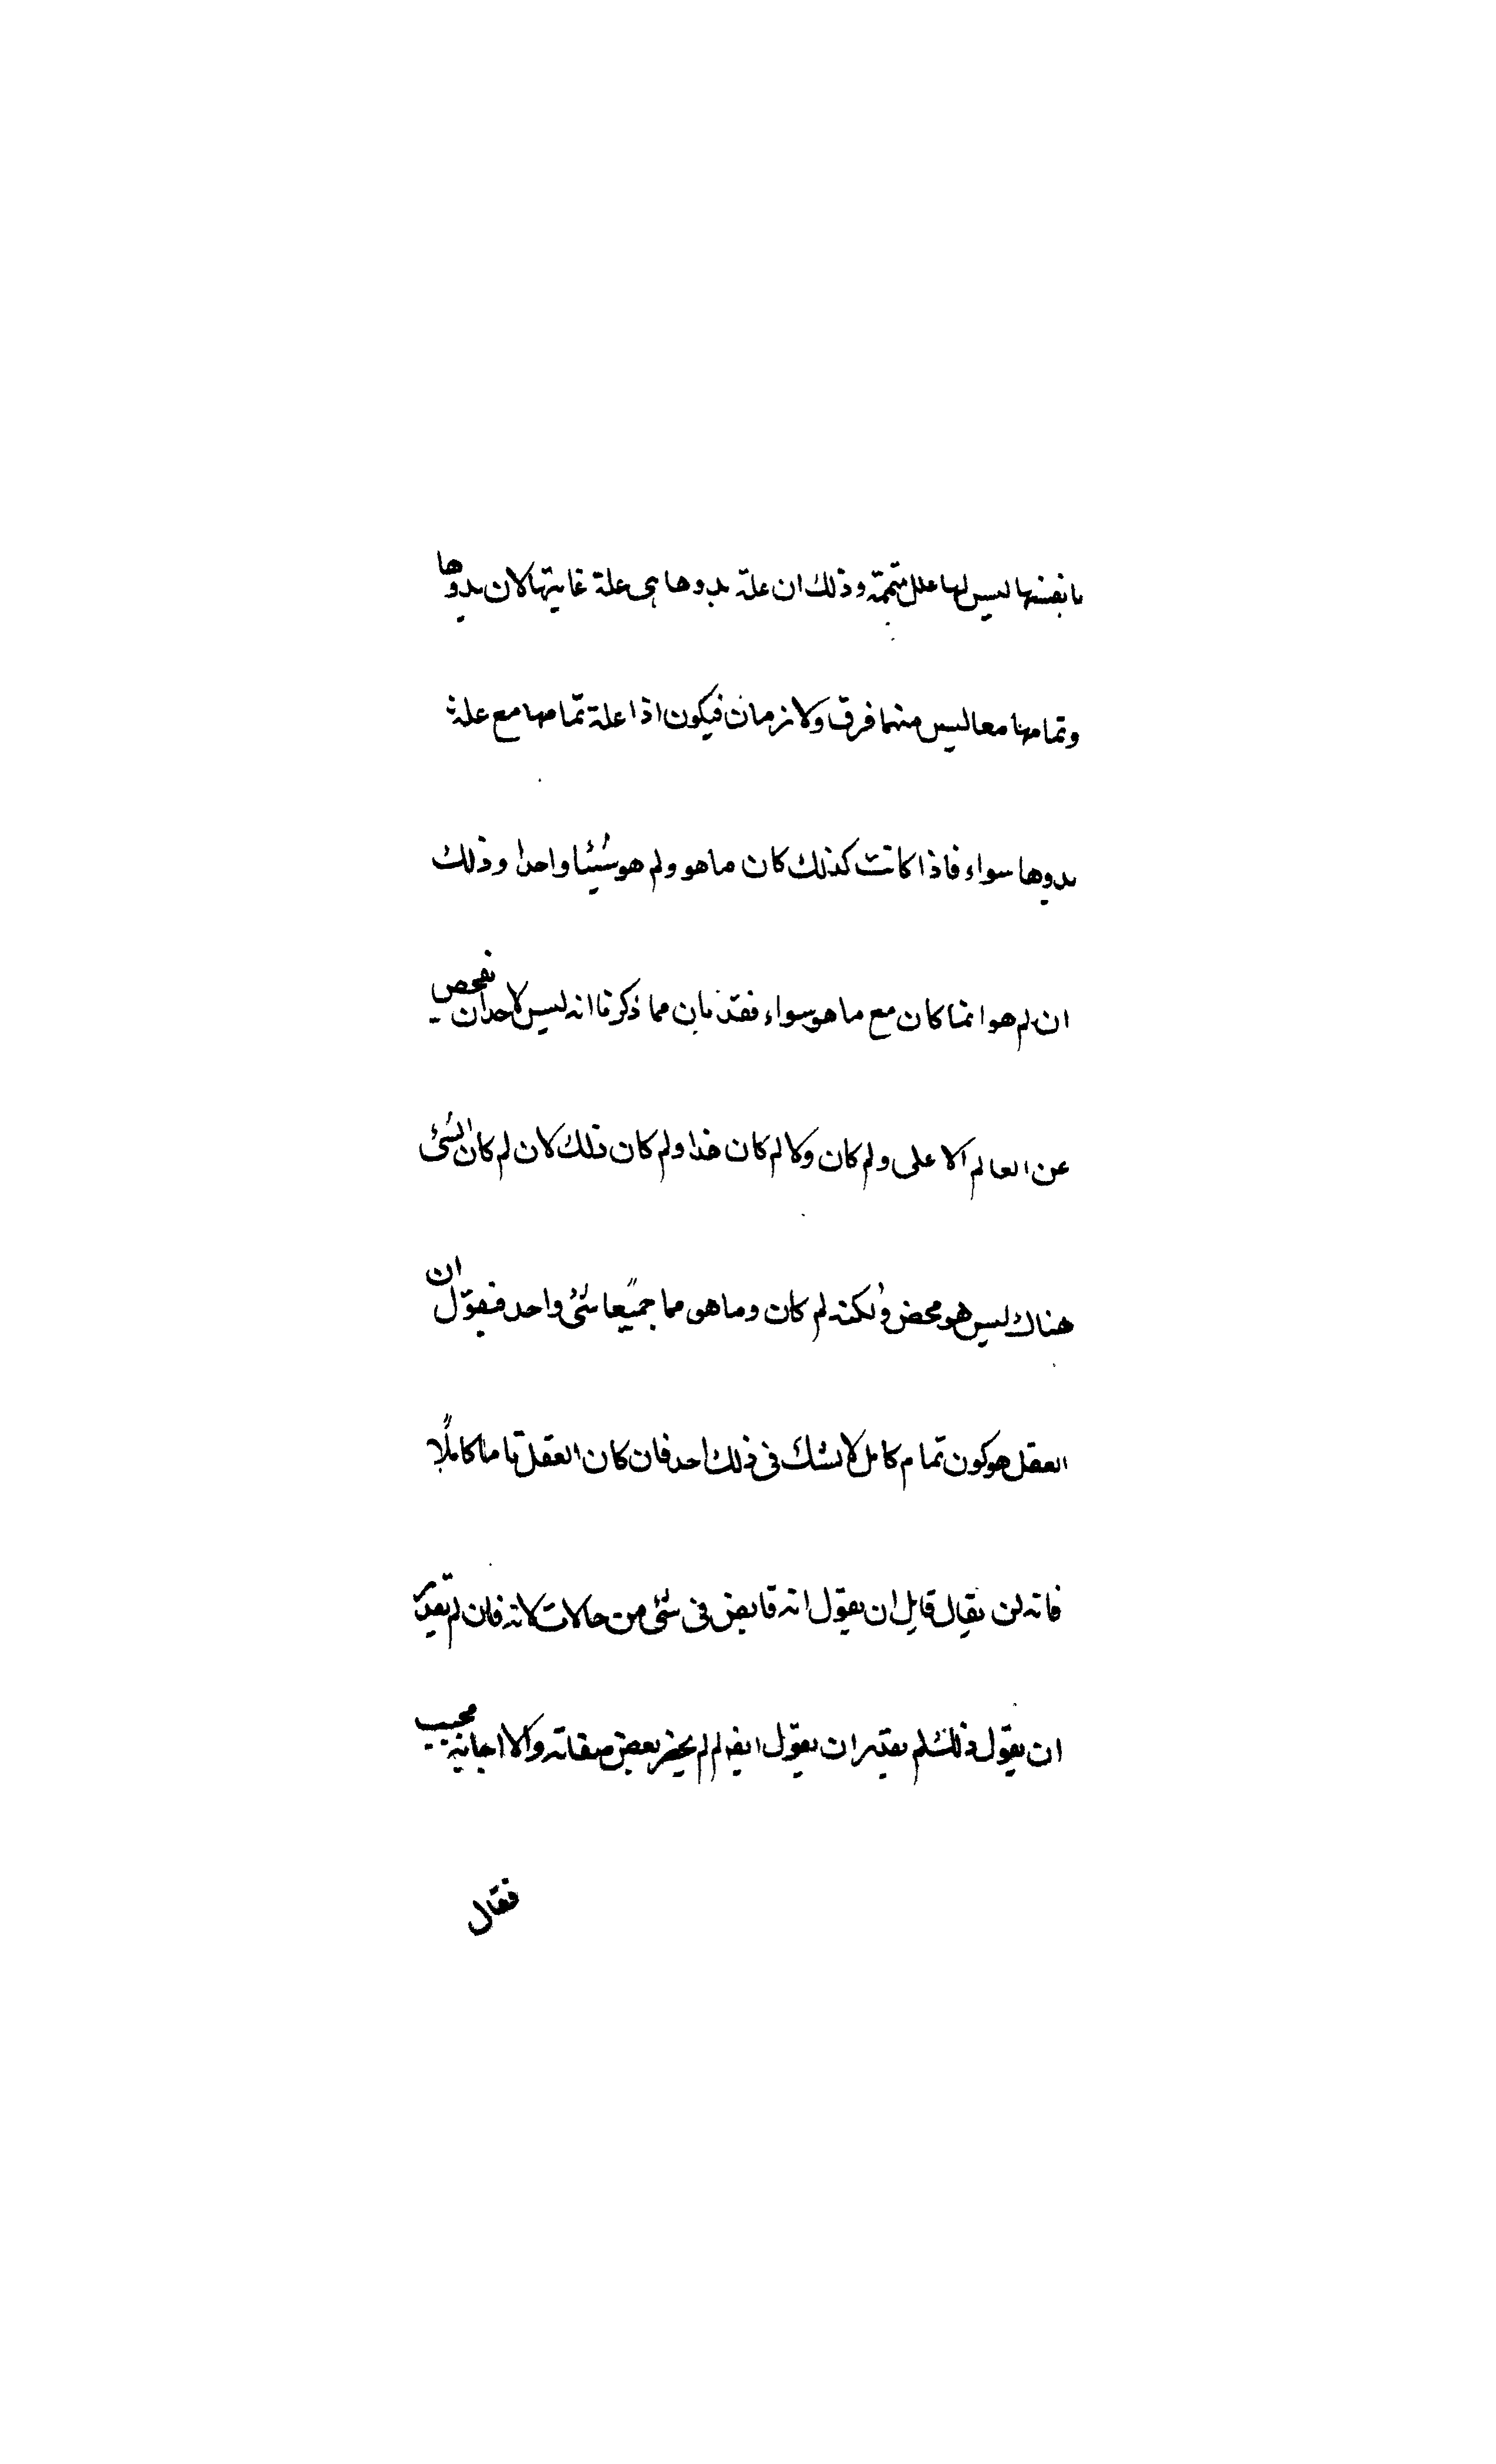 بانفسها ليس لها علل متممة وذلك ان علة بدوها هى علة غايتها لان بدوها
وتمامها معا ليس منهما فرق ولا زمان فيكون اذا علة تمامها مع علة
بدوها سواء فاذا كانت كذلك كان ما هو ولم هو شيئا واحدا وذلك
ان لم هو انما كان مع ما هو سواء فقد بان مما ذكرنا انه ليس لاحد ان يفحص
عن العالم الاعلى ولم كان ولا لم كان هذا ولم كان ذلك لان لم كان الشئ
هناك ليس هو محض ولكنه لم كان وما هو مما جميعا شئ واحد فيقول ان
العقل هو كون تمام كامل لا يشك فى ذلك احد فان كان العقل تاما كاملا
فانه لن يقال قايل ان يقول انه قايض فى شئ من حالات لانه فان لم يقدر
ان يقول ذلك لم يقدر ان يقول ايضا لم لم يحضر بعض صفاته والا اجابه مجيب
فقال